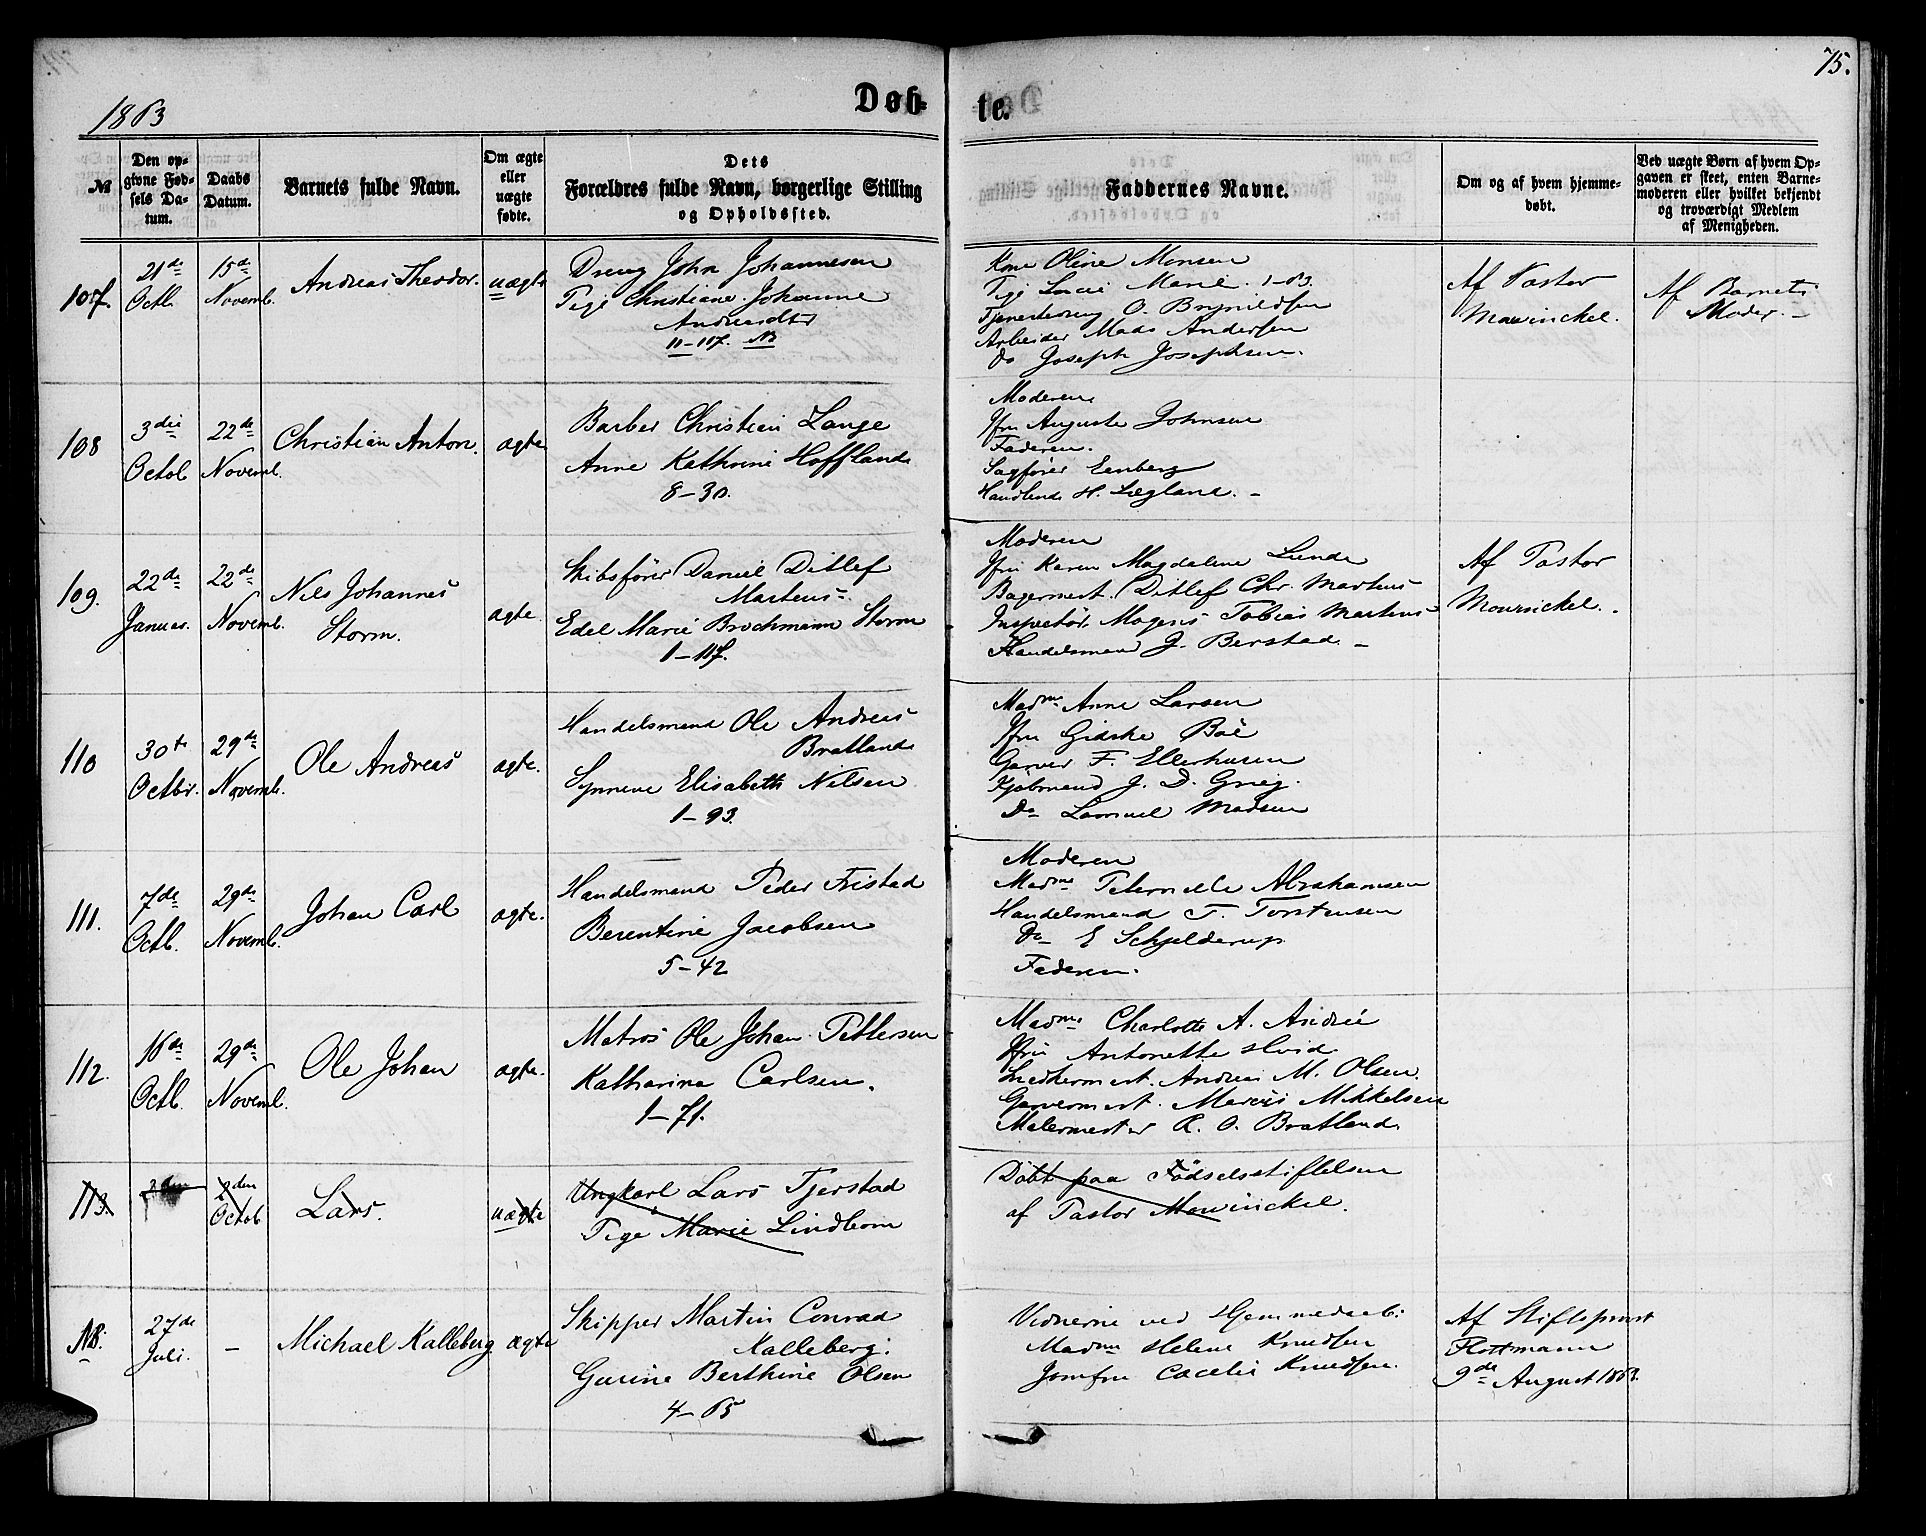 1863
Døb-
te.
75.
№
Den op-
givne Fød-
sels Da-
tum.
Daabs
Datum.
Barnets fulde Navn.
Om ægte
eller
uægte
fødte.
Dets
Forældres fulde Navn, borgerlige Stilling
og Opholdssted.
Faddernes Navne.
Om og af hvem hjemme-
døbt.
Ved uægte Børn af hvem Op-
gaven er skeet, enten Barne-
moderen eller hvilket bekjendt
og troværdigt Medlem
af Menigheden.
107.
21de
Octb.
15de
Novemb.
Andreas Theodor.
uægte
Dreng John Johannesen
Pige Christiane Johanne
11-117. NB
Kone Oline Monsen
Pige Marie. 1-63.
Tjenestedreng O. Brynildsen
Arbeider Mads Andersen
do Joseph Josephsen.
Af Pastor
Mowinckel.
Af Barnets
Moder. -
108
3die
Octob
22de
Novemb.
Christian Anton.
ægte
Barber Christian Lange
Anne Kathrine Hoffland
8-30.
Moderen
Jfru Auguste Johnsen
Faderen.
Sagfører Enberg
Handlende H. Lægland. -
109.
22de
Januar.
22de
Novemb.
Nils Johannes
Storm.
ægte.
Skibsfører Daniel Ditlef
Martens.
Edel Marie Brochmann Storm
1-117.
Moderen
Jfru Karen Magdalene Lunde
Bagermest. Ditlef Chr. Martens
Inspectør Mogens Tobias Martens
Handelsmand J. Berstad. -
Af Pastor
Mowinckel.
110
30te
Octbr.
29de
Novemb.
Ole Andreas
ægte.
Handelsmand Ole Andreas
Bratland
Synneve Elisabeth Nilsen
1-93.
Madme Anne Larsen
Jfru Gidske Böe
Garver F. Ellerhusen
Kjøbmand J. D. Grieg.
Do Samuel Madsen
111.
7de
Octb.
29de
Novemb.
Johan Carl
ægte.
Handelsmand Peder Fristad
Berentine Jacobsen
5-42
Moderen
Madme Peternelle Abrahamsen
Handelsmand T. Torstensen
Do E Schjelderup
Faderen.
112.
16de
Octb.
29de
Novemb.
Ole Johan
ægte.
Matros Ole Johan Pettersen
Katharina Carlsen.
1-71.
Madme Charlotte A. Andrée
Jfru Antonette Hvid.
Snedkermest. Andreas M. Olsen.
Garvermest. Marcus Mikkelsen
Malermester R. O. Bratland.
113.
2den
Octob
Lars.
uægte
Ungkarl Lars Tjerstad
Pige Marie Lindbom
Døbt paa Födselsstiftelsen
af Pastor Mowinckel.
NB.
27de
Juli.
-
Michael Kalleberg
ægte
Skipper Martin Conrad
Kalleberg.
Gurine Berthine Olsen
4-65
Vidnerne ved Hjemmedaab:
Madme Helene Knudsen
Jomfru Cæcilie Knudsen.
Af Stiftsprovst
Flottmann
9de August 1863.